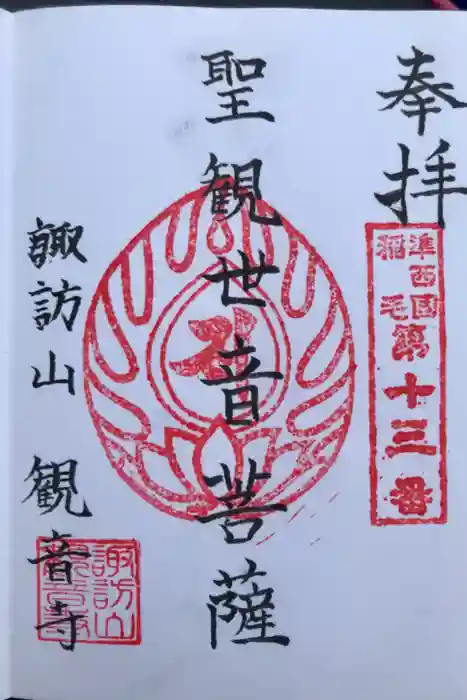 奉拝
準西國
稲毛
第十三番
聖観世音菩薩
諏訪山 観音寺
諏訪山
観音寺